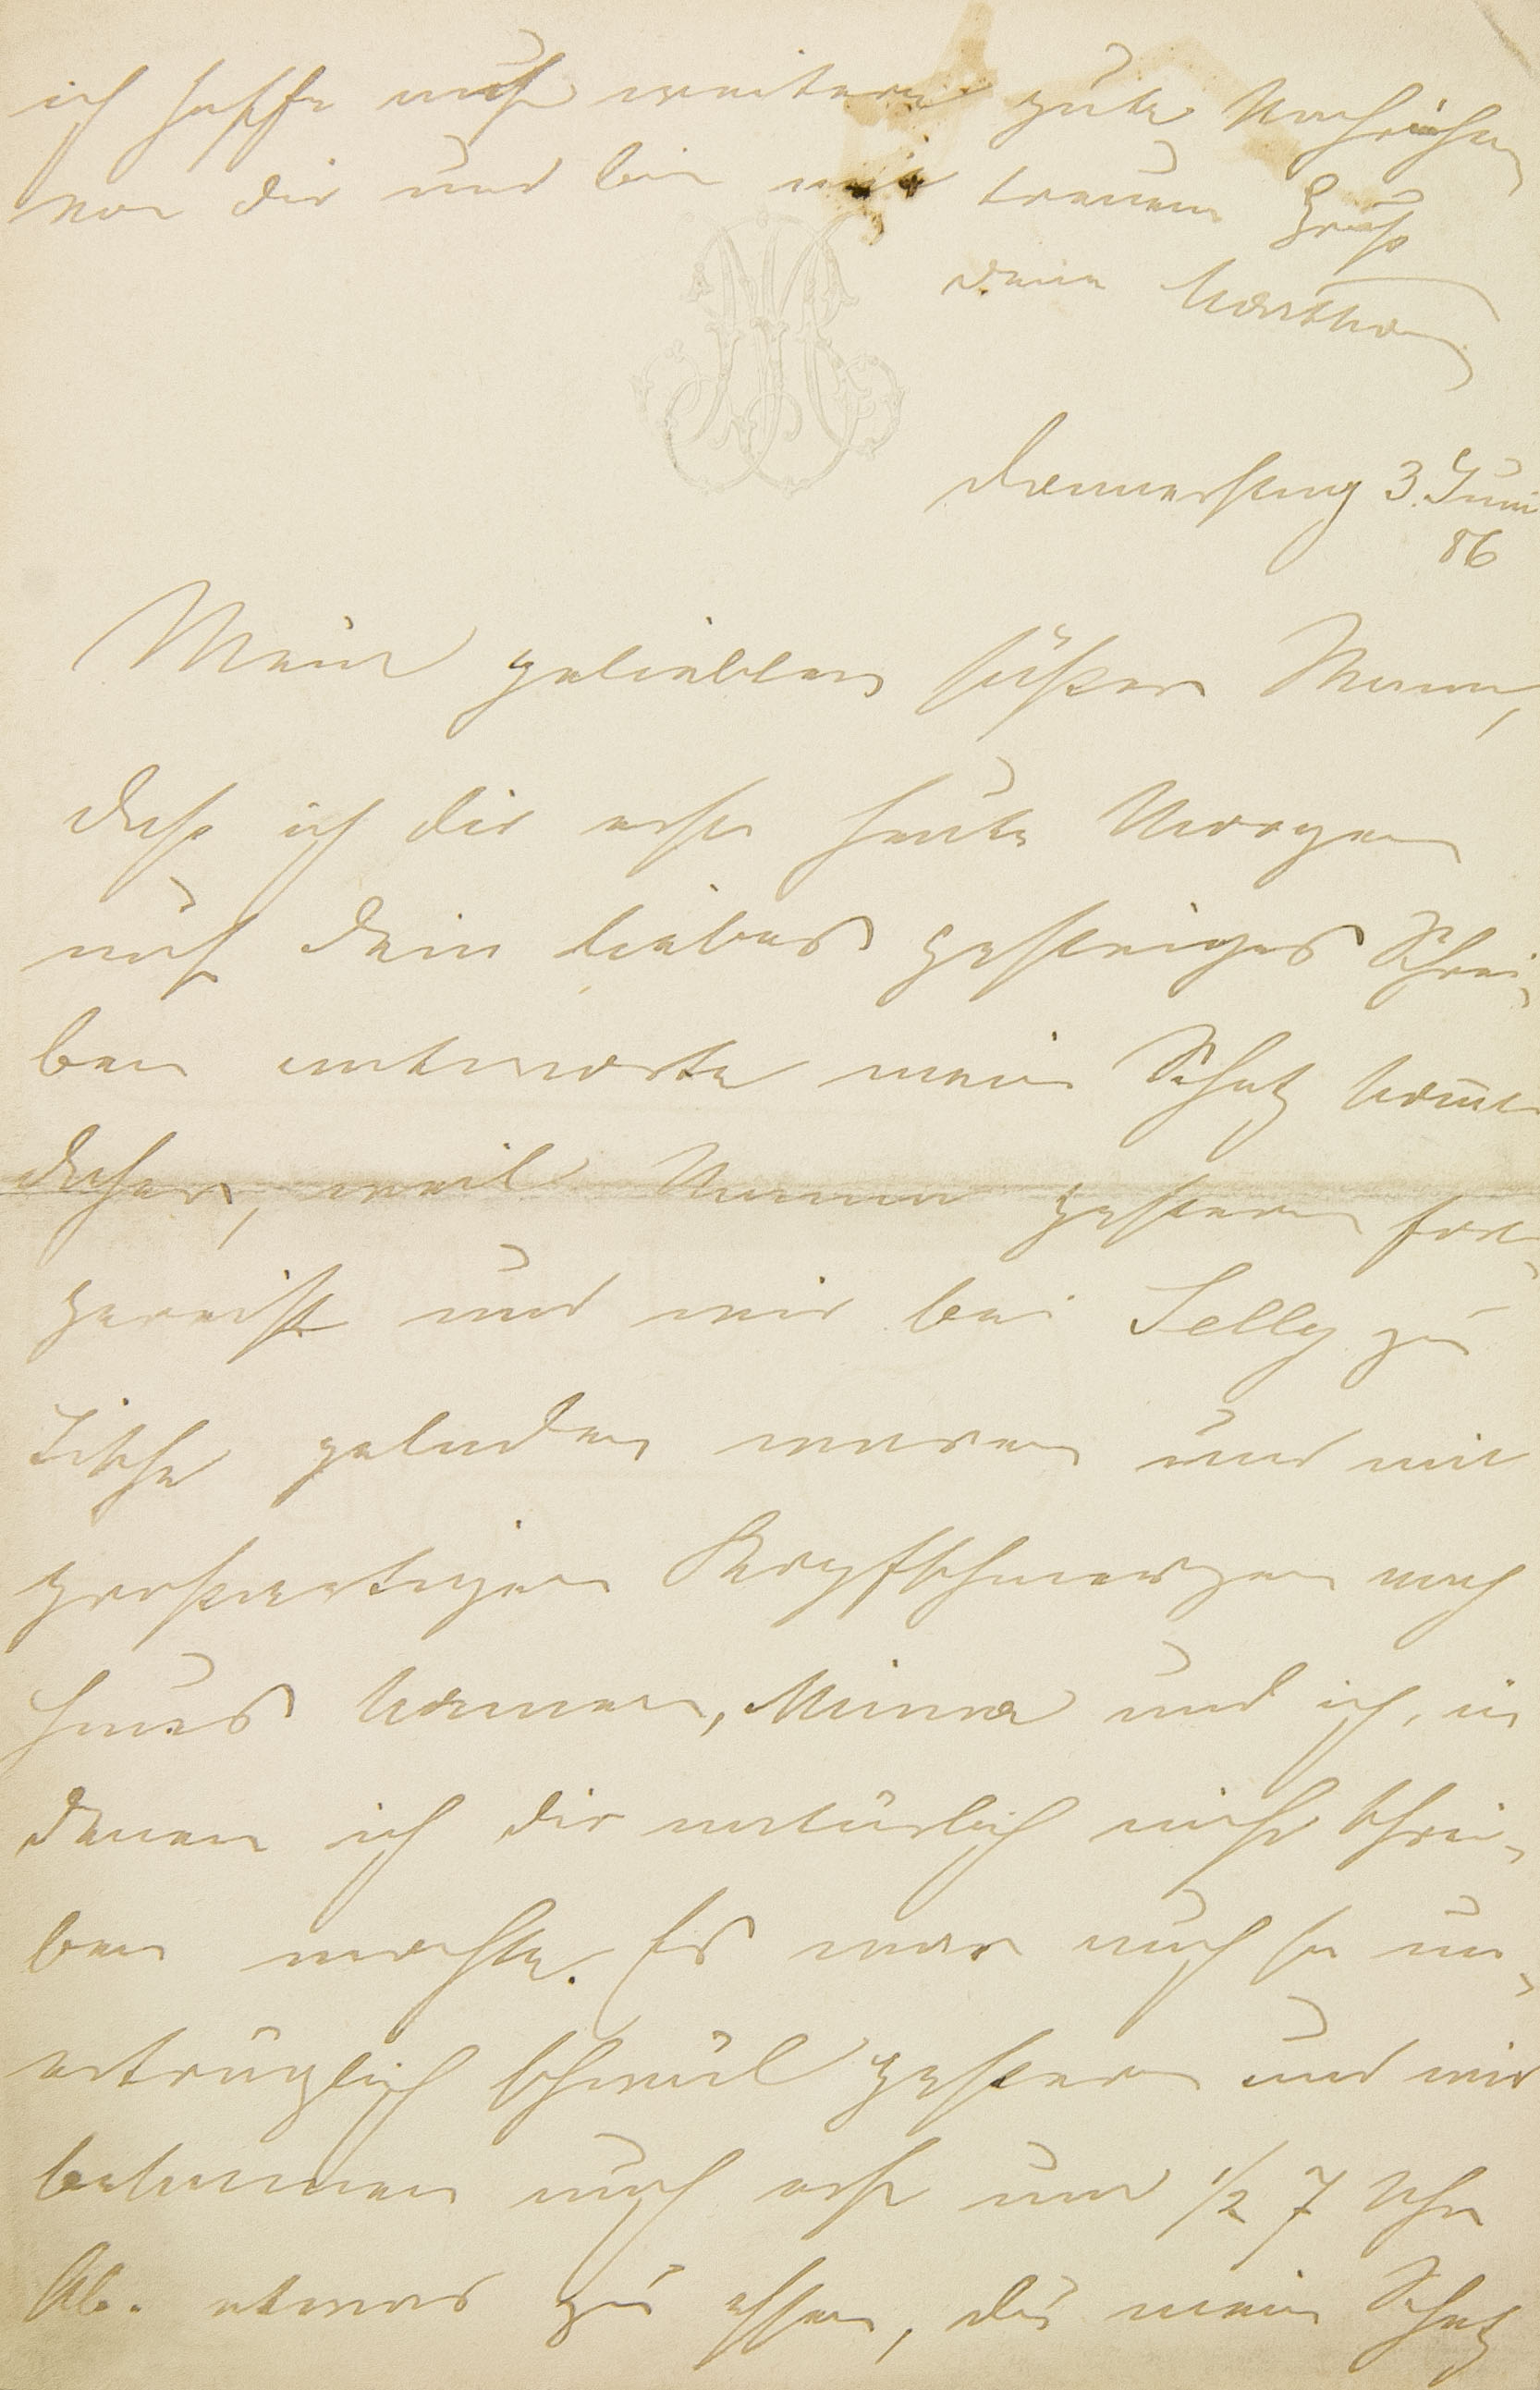 ich hoffe auf weitere gute Nachrichten
von dir und bin mit treuem Gruß
deine Martha
Donnerstag 3. Juni
86
Mein geliebter süßer Mann,
daß ich dir erst heute Morgen
auf dein liebes gestriges Schrei-
ben antworte mein Schatz kommt
daher, weil Mama gestern fort-
gereist und wir bei Selly zu
Tische geladen waren und mit
großartigen Kopfschmerzen nach
Haus kamen, Minna und ich, in
denen ich dir natürlich nicht schrei-
ben mochte. Es war auch so un-
erträglich schwül gestern und wir
bekamen auch erst um ½ 7 Uhr
Ab. etwas zu essen, du mein Schatz